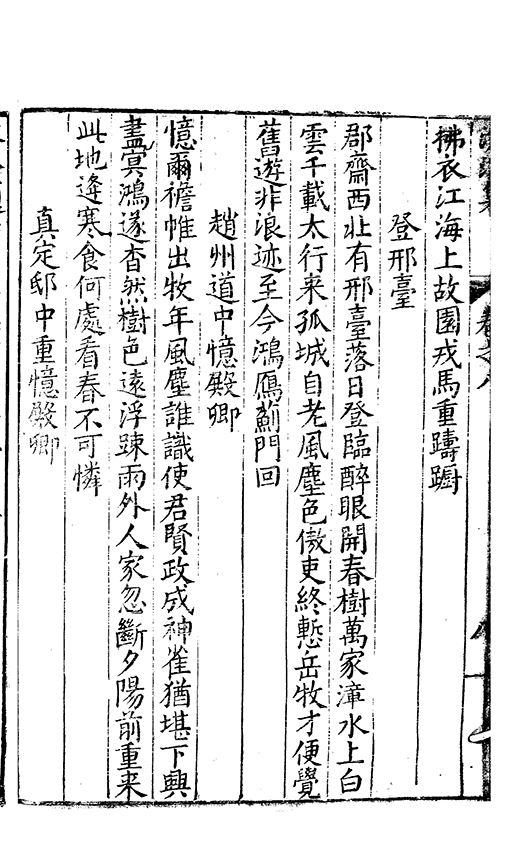 拂衣江海上故園戎馬重躊躕
登邢臺
郡齋西北有邢臺落日登臨醉眼開春樹萬家漳水上白
雲千載太行來孤城自老風塵色傲吏終慙岳牧才便覺
舊遊非浪迹至今鴻鴈薊門回
趙州道中憶殿卿
憶爾襜帷出牧年風塵誰識使君賢政成神雀猶堪下興
盡㝠鴻遂杳然樹色遠浮踈雨外人家忽斷夕陽前重來
此地逢寒食何處看春不可憐
真定邸中重憶殿卿